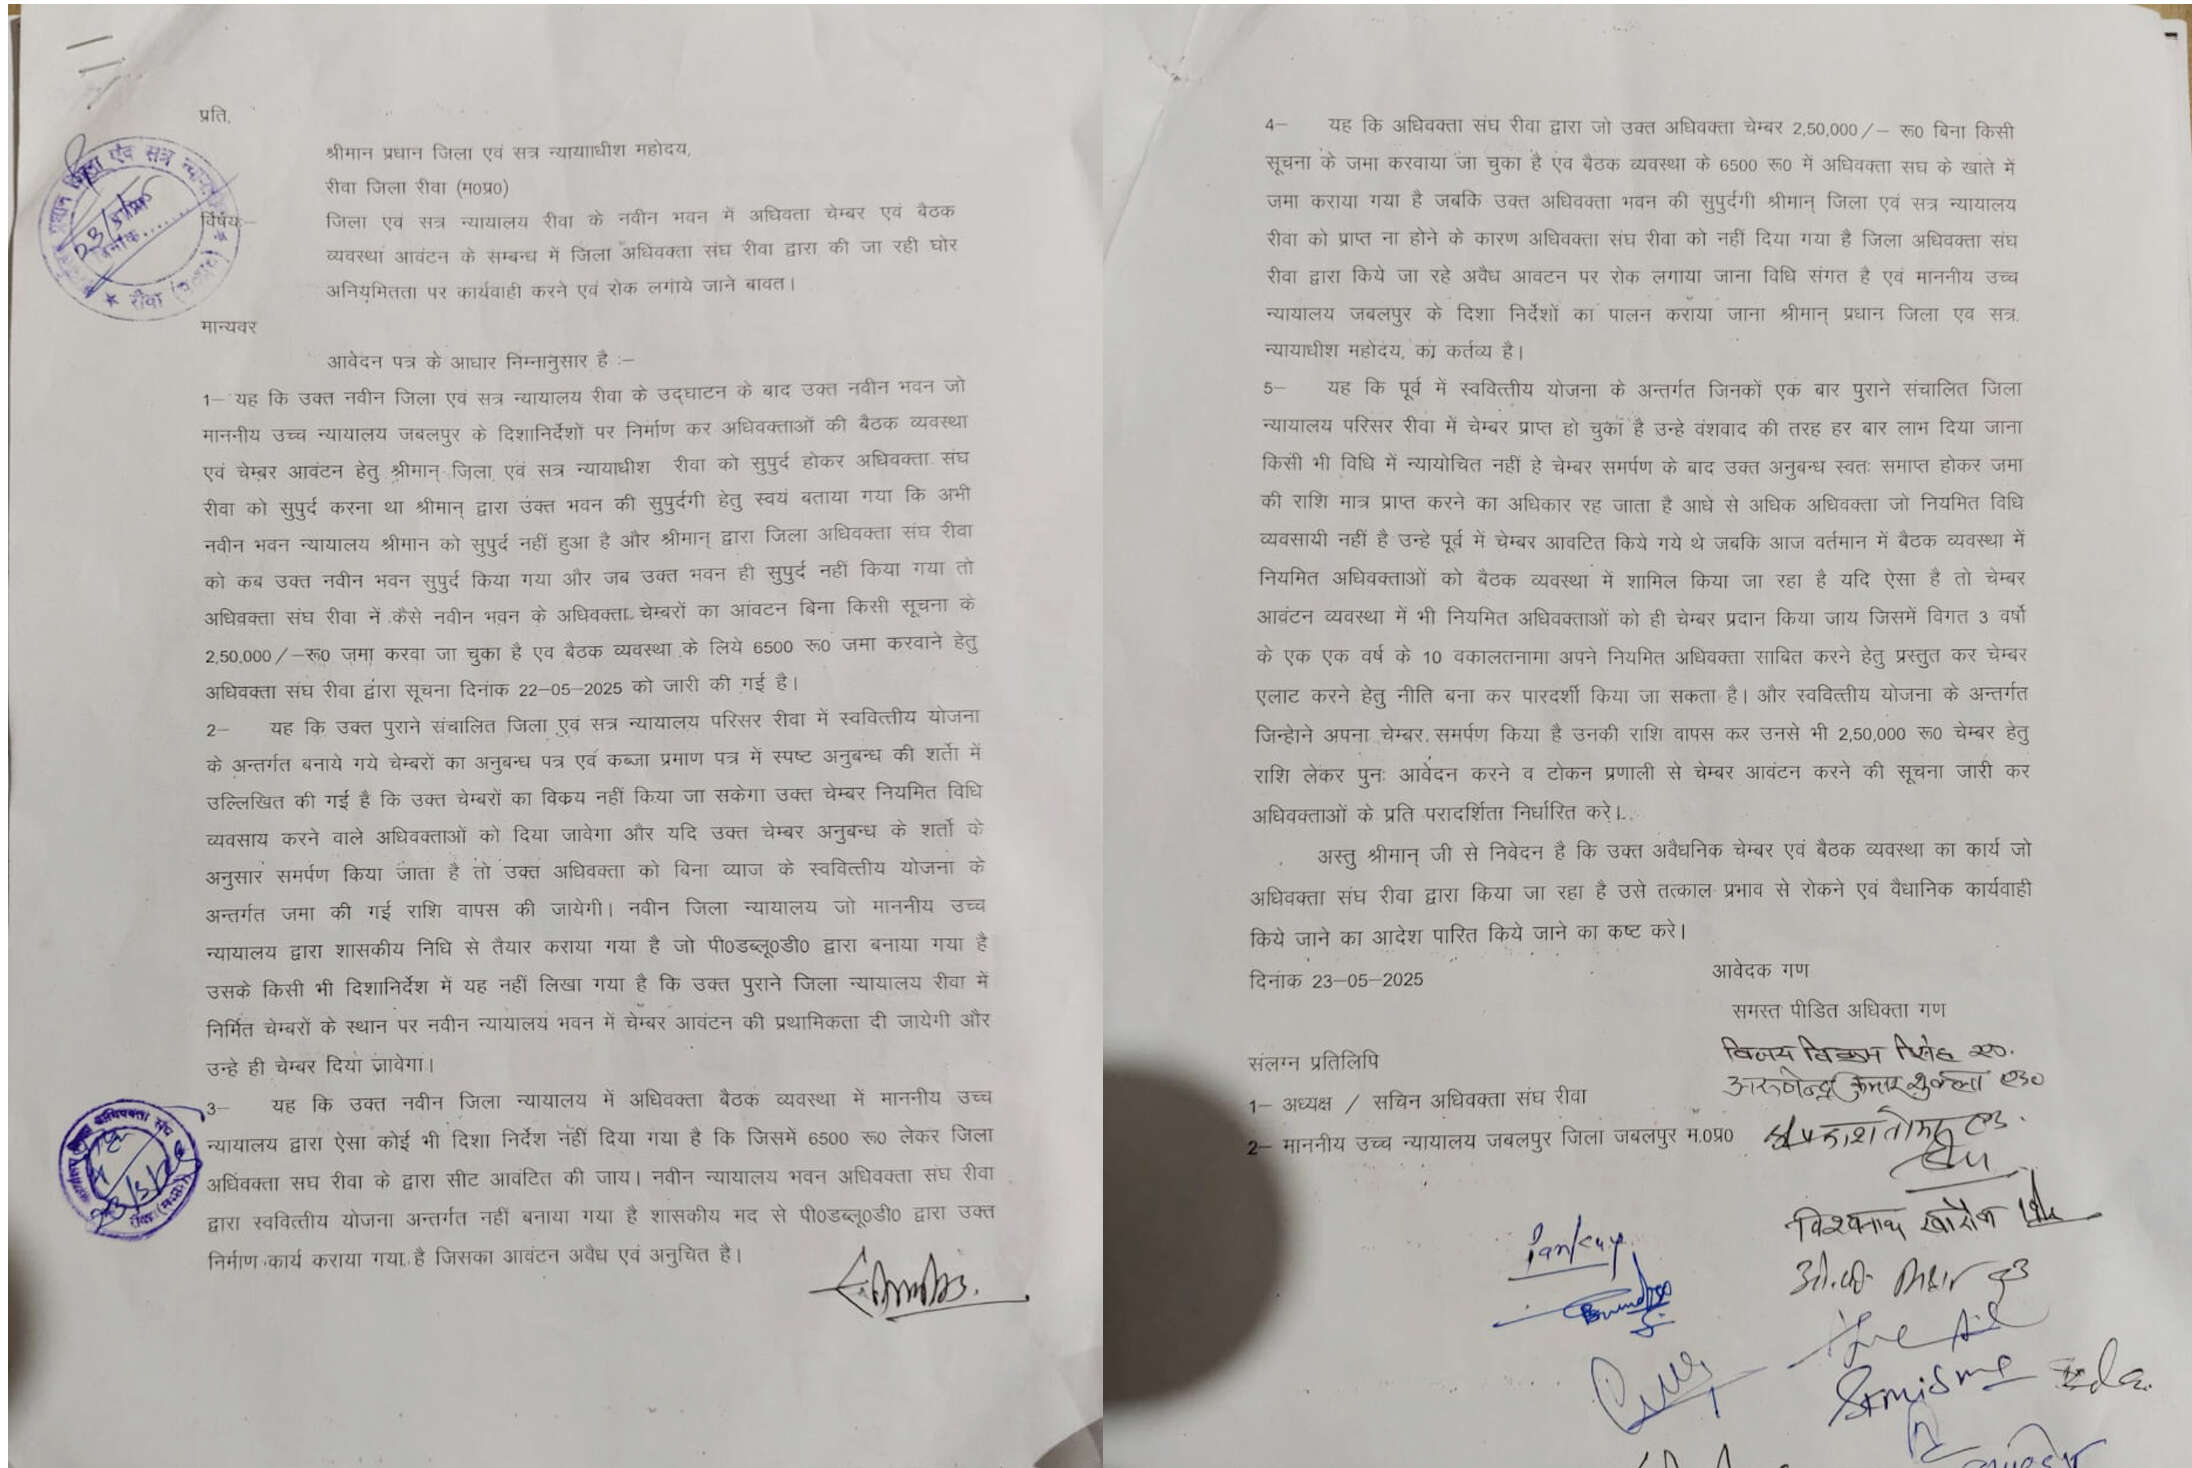 प्रति,
श्रीमान प्रधान जिला एवं सत्र न्यायााधीश महोदय,
रीवा जिला रीवा (म0प्र0)
विषय:–
जिला एवं सत्र न्यायालय रीवा के नवीन भवन में अधिवता चेम्बर एवं बैठक
व्यवस्था आवंटन के सम्बन्ध में जिला अधिवक्ता संघ रीवा द्वारा की जा रही घोर
अनियमितता पर कार्यवाही करने एवं रोक लगाये जाने बावत।
मान्यवर
आवेदन पत्र के आधार निम्नानुसार है :–
1– यह कि उक्त नवीन जिला एवं सत्र न्यायालय रीवा के उद्घाटन के बाद उक्त नवीन भवन जो
माननीय उच्च न्यायालय जबलपुर के दिशानिर्देशों पर निर्माण कर अधिवक्ताओं की बैठक व्यवस्था
एवं चेम्बर आवंटन हेतु श्रीमान् जिला एवं सत्र न्यायाधीश रीवा को सुपुर्द होकर अधिवक्ता संघ
रीवा को सुपुर्द करना था श्रीमान् द्वारा उक्त भवन की सुपुर्दगी हेतु स्वयं बताया गया कि अभी
नवीन भवन न्यायालय श्रीमान को सुपुर्द नहीं हुआ है और श्रीमान् द्वारा जिला अधिवक्ता संघ रीवा
को कब उक्त नवीन भवन सुपुर्द किया गया और जब उक्त भवन ही सुपुर्द नहीं किया गया तो
अधिवक्ता संघ रीवा नें कैसे नवीन भवन के अधिवक्ता चेम्बरों का आंवटन बिना किसी सूचना के
2,50,000/–रू0 जमा करवा जा चुका है एव बैठक व्यवस्था के लिये 6500 रू0 जमा करवाने हेतु
अधिवक्ता संघ रीवा द्वारा सूचना दिनांक 22–05–2025 को जारी की गई है।
2– यह कि उक्त पुराने संचालित जिला एवं सत्र न्यायालय परिसर रीवा में स्ववित्तीय योजना
के अन्तर्गत बनाये गये चेम्बरों का अनुबन्ध पत्र एवं कब्जा प्रमाण पत्र में स्पष्ट अनुबन्ध की शर्तो में
उल्लिखित की गई है कि उक्त चेम्बरों का विकय नहीं किया जा सकेगा उक्त चेम्बर नियमित विधि
व्यवसाय करने वाले अधिवक्ताओं को दिया जावेगा और यदि उक्त चेम्बर अनुबन्ध के शर्तो के
अनुसार समर्पण किया जाता है तो उक्त अधिवक्ता को बिना व्याज के स्ववित्तीय योजना के
अन्तर्गत जमा की गई राशि वापस की जायेगी। नवीन जिला न्यायालय जो माननीय उच्च
न्यायालय द्वारा शासकीय निधि से तैयार कराया गया है जो पी0डब्लू0डी0 द्वारा बनाया गया है
उसके किसी भी दिशानिर्देश में यह नहीं लिखा गया है कि उक्त पुराने जिला न्यायालय रीवा में
निर्मित चेम्बरों के स्थान पर नवीन न्यायालय भवन में चेम्बर आवंटन की प्रथामिकता दी जायेगी और
उन्हे ही चेम्बर दिया जावेगा।
3– यह कि उक्त नवीन जिला न्यायालय में अधिवक्ता बैठक व्यवस्था में माननीय उच्च
न्यायालय द्वारा ऐसा कोई भी दिशा निर्देश नहीं दिया गया है कि जिसमें 6500 रू0 लेकर जिला
अधिवक्ता सघ रीवा के द्वारा सीट आवंटित की जाय। नवीन न्यायालय भवन अधिवक्ता संघ रीवा
द्वारा स्ववित्तीय योजना अन्तर्गत नहीं बनाया गया है शासकीय मद से पी0डब्लू0डी0 द्वारा उक्त
निर्माण कार्य कराया गया है जिसका आवंटन अवैध एवं अनुचित है।
4– यह कि अधिवक्ता संघ रीवा द्वारा जो उक्त अधिवक्ता चेम्बर 2,50,000/– रू0 बिना किसी
सूचना के जमा करवाया जा चुका है एंव बैठक व्यवस्था के 6500 रू0 में अधिवक्ता सघ के खाते में
जमा कराया गया है जबकि उक्त अधिवक्ता भवन की सुपुर्दगी श्रीमान् जिला एवं सत्र न्यायालय
रीवा को प्राप्त ना होने के कारण अधिवक्ता संघ रीवा को नहीं दिया गया है जिला अधिवक्ता संघ
रीवा द्वारा किये जा रहे अवैध आवटन पर रोक लगाया जाना विधि संगत है एवं माननीय उच्च
न्यायालय जबलपुर के दिशा निर्देशों का पालन कराया जाना श्रीमान् प्रधान जिला एव सत्र
न्यायाधीश महोदय, का कर्तव्य है।
5– यह कि पूर्व में स्ववित्तीय योजना के अन्तर्गत जिनकों एक बार पुराने संचालित जिला
न्यायालय परिसर रीवा में चेम्बर प्राप्त हो चुका है उन्हे वंशवाद की तरह हर बार लाभ दिया जाना
किसी भी विधि में न्यायोचित नहीं हे चेम्बर समर्पण के बाद उक्त अनुबन्ध स्वतः समाप्त होकर जमा
की राशि मात्र प्राप्त करने का अधिकार रह जाता है आधे से अधिक अधिवक्ता जो नियमित विधि
व्यवसायी नहीं है उन्हे पूर्व में चेम्बर आवटित किये गये थे जबकि आज वर्तमान में बैठक व्यवस्था में
नियमित अधिवक्ताओं को बैठक व्यवस्था में शामिल किया जा रहा है यदि ऐसा है तो चेम्बर
आवंटन व्यवस्था में भी नियमित अधिवक्ताओं को ही चेम्बर प्रदान किया जाय जिसमें विगत 3 वर्षो
के एक एक वर्ष के 10 वकालतनामा अपने नियमित अधिवक्ता साबित करने हेतु प्रस्तुत कर चेम्बर
एलाट करने हेतु नीति बना कर पारदर्शी किया जा सकता है। और स्ववित्तीय योजना के अन्तर्गत
जिन्होने अपना चेम्बर समर्पण किया है उनकी राशि वापस कर उनसे भी 2,50,000 रू0 चेम्बर हेतु
राशि लेकर पुनः आवेदन करने व टोकन प्रणाली से चेम्बर आवंटन करने की सूचना जारी कर
अधिवक्ताओं के प्रति परादर्शिता निर्धारित करे।
अस्तु श्रीमान् जी से निवेदन है कि उक्त अवैधनिक चेम्बर एवं बैठक व्यवस्था का कार्य जो
अधिवक्ता संघ रीवा द्वारा किया जा रहा है उसे तत्काल प्रभाव से रोकने एवं वैधानिक कार्यवाही
किये जाने का आदेश पारित किये जाने का कष्ट करे।
दिनांक 23–05–2025
आवेदक गण
समस्त पीडित अधिक्ता गण
विजय विक्रम सिंह एड.
अरुणेन्द्र कुमार शुक्ला एड0
संलग्न प्रतिलिपि
1– अध्यक्ष / सचिन अधिवक्ता संघ रीवा
2– माननीय उच्च न्यायालय जबलपुर जिला जबलपुर म.0प्र0
Pankay